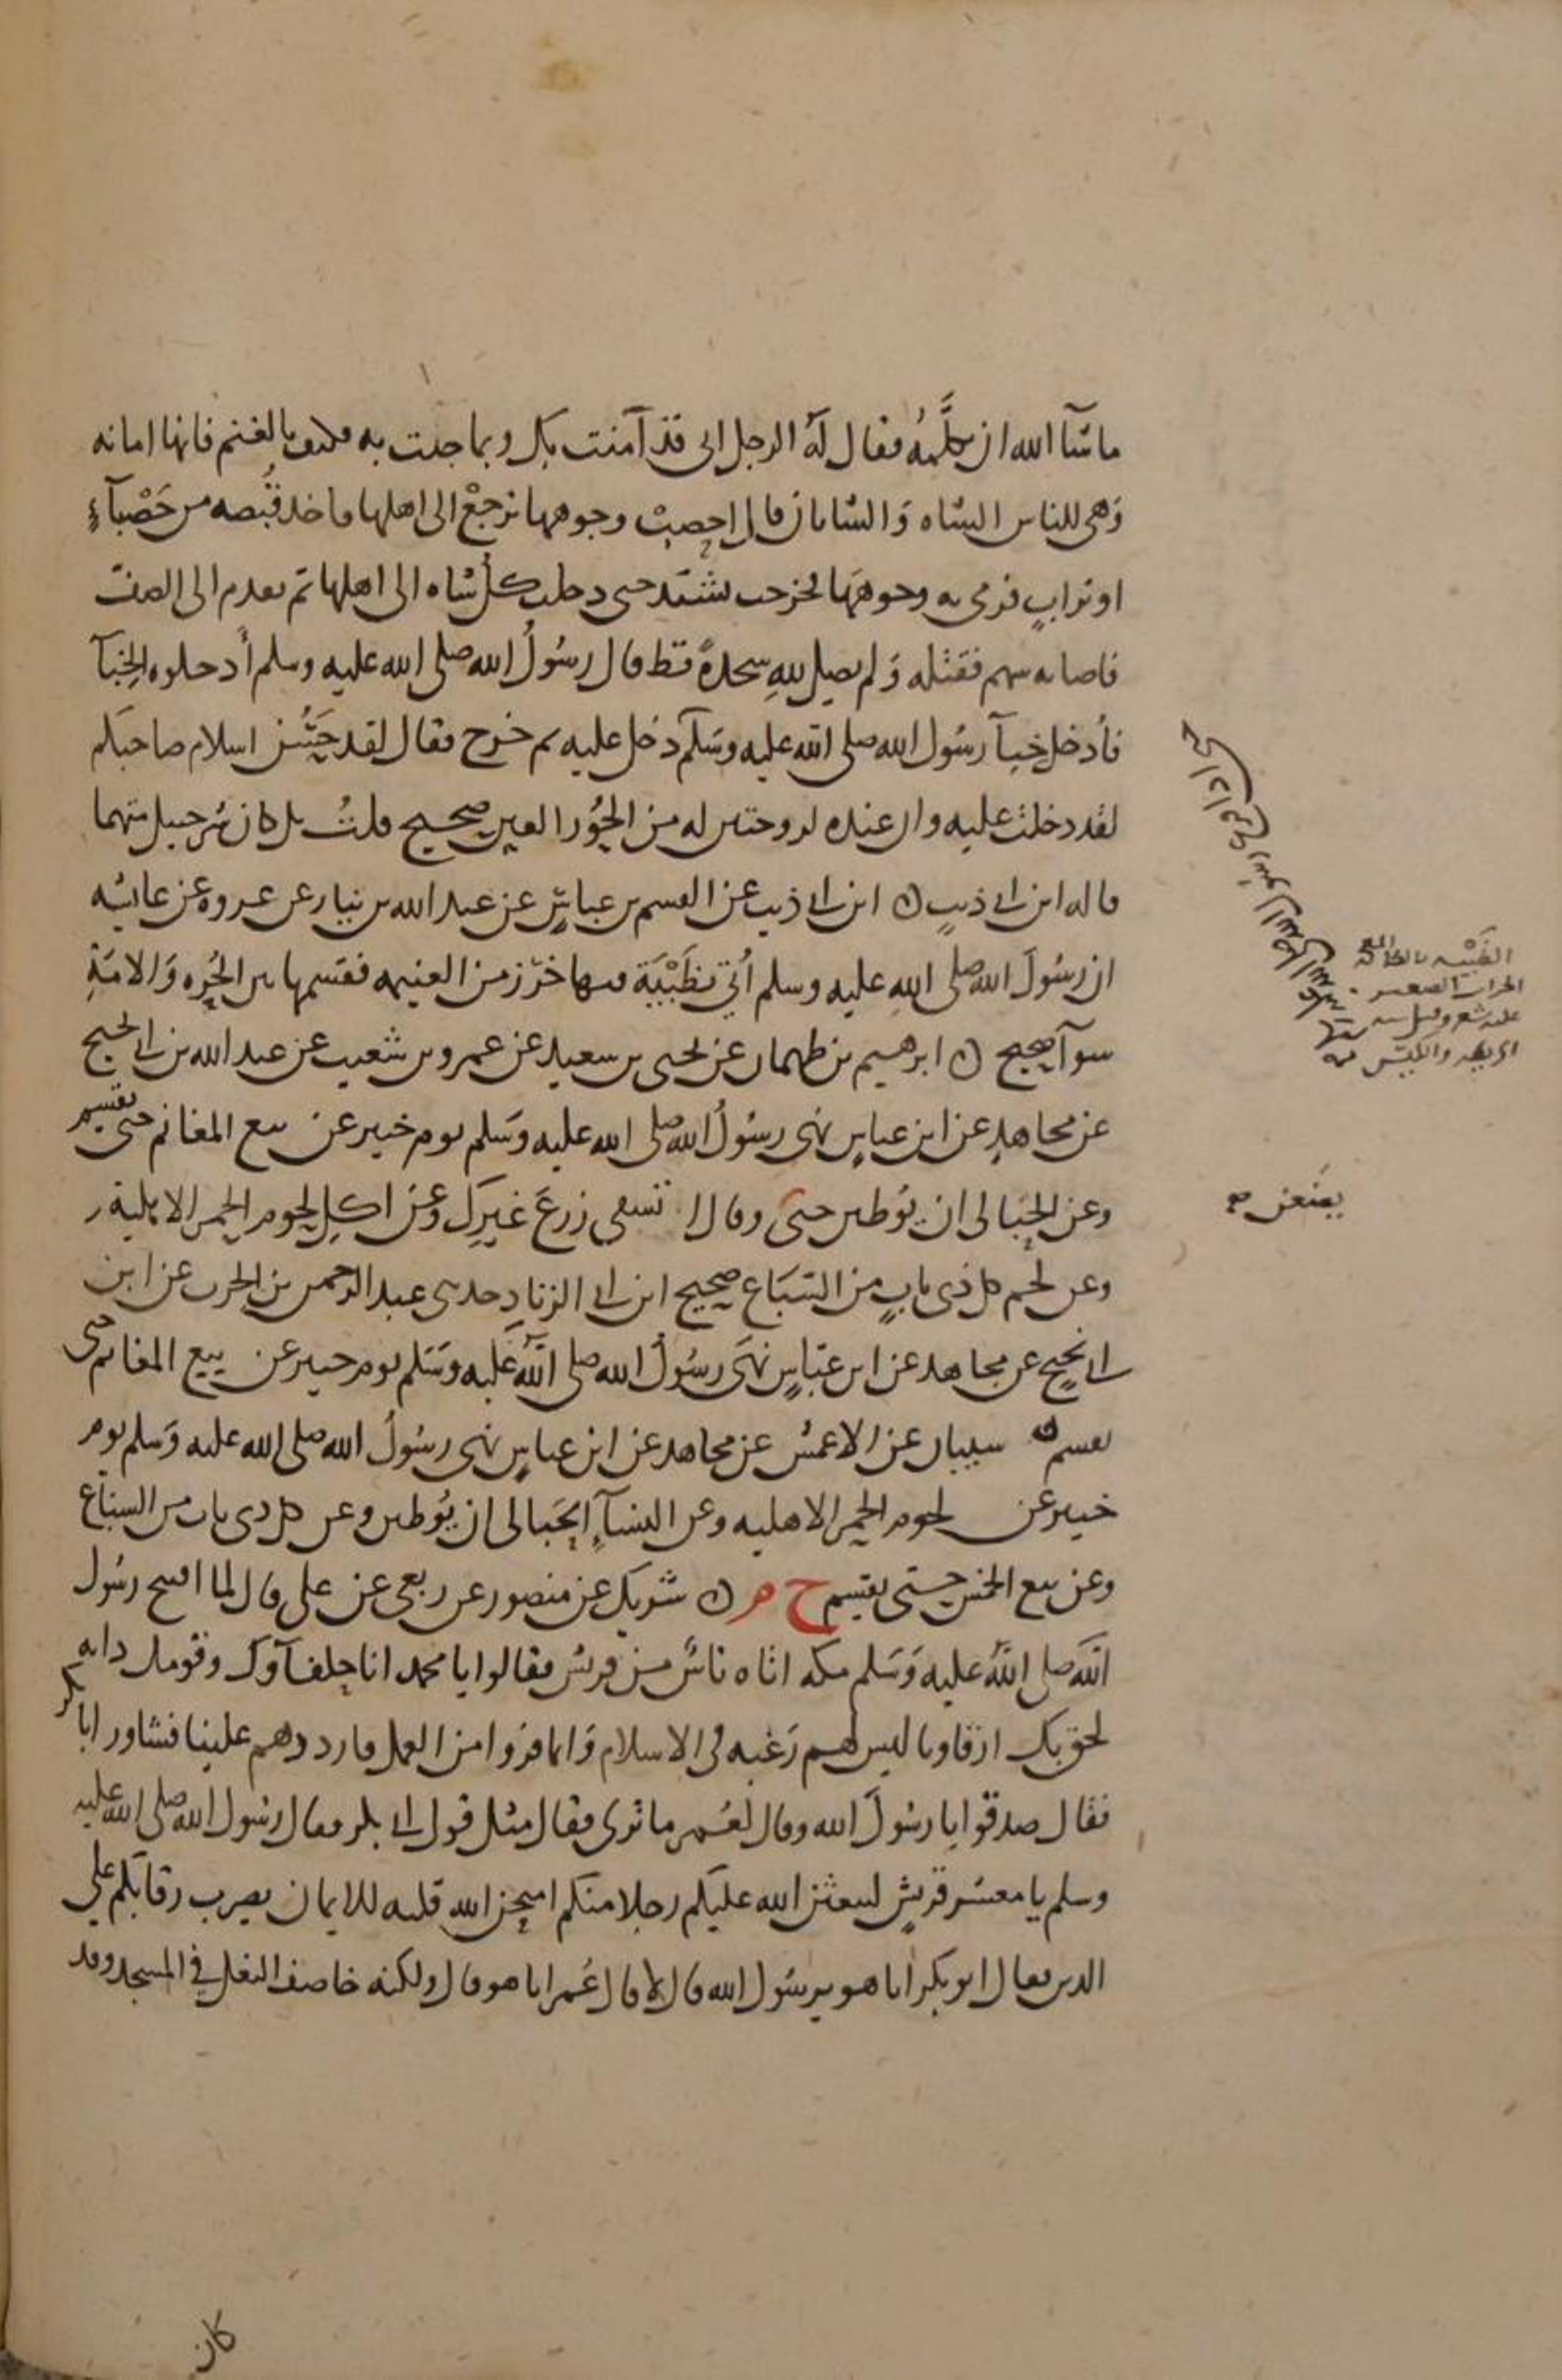 ما شآ الله ان يكلَّمه فقال له الرجل اني قد آمنت بك وبما جئت به فكيف بالغنم فانها امانه
وهي للناس الشاه والشاتان قال احصب وجوهها ترجع الى اهلها فاخذ قبصه من حصبآء
او تراب فرمى به وجوهها فخرجت تشتد حتى دخلت كل شاه الى اهلها ثم تقدم الى الصف
فاصابه سهم فقتله ولم يصل لله سجدة قط قال رسول الله صلى الله عليه وسلم أدخلوه الخبآ
فأدخل خبآ رسول الله صلى الله عليه وسلم دخل عليه ثم خرج فقال لقد حسن اسلام صاحبكم
لقد دخلت عليه وان عنده لزوجتين له من الحور العين صحيح قلت بل كان شرحبيل متهما
قاله ابن ابي ذيب ن ابن ابي ذيب عن القسم بن عباس عن عبد الله بن نيار عن عروه عن عائشه
ان رسول الله صلى الله عليه وسلم أتي بظبية فيها خرز من الغنيمه فقسمها بين الحره والامة
سوآ صحيح ن ابرهيم بن طهمان عن يحيى بن سعيد عن عمرو بن شعيب عن عبد الله بن ابي نجيح
عن مجاهد عن ابن عباس نهى رسول الله صلى الله عليه وسلم يوم خيبر عن بيع المغانم حتى تقسم
وعن الحبالى ان يوطين حتى وقال لا تسقي زرع غيرك وعن اكل لحوم الحمر الاهلية
وعن لحم كل ذي ناب من السباع صحيح ابن ابي الزناد حدثني عبد الرحمن بن الحرث عن ابن
ابي نجيح عن مجاهد عن ابن عباس نهى رسول الله صلى الله عليه وسلم يوم خيبر عن بيع المغانم حتى
تقسم ن شيبان عن الاعمش عن مجاهد عن ابن عباس نهى رسول الله صلى الله عليه وسلم يوم
خيبر عن لحوم الحمر الاهليه وعن النسآء الحبالى ان يوطين وعن كل ذي ناب من السباع
وعن بيع الخمس حتى يقسم خ م ن شريك عن منصور عن ربعي عن علي قال لما افتتح رسول
الله صلى الله عليه وسلم مكه اتاه ناس من قريش فقالوا يا محمد انا حلفآوك وقومك وانه
لحق بك ارقاونا ليس لهم رغبه في الاسلام وانما فروا من العمل فارددهم علينا فشاور ابا بكر
فقال صدقوا يا رسول الله وقال لعمر ما ترى فقال مثل قول ابي بكر فقال رسول الله صلى الله عليه
وسلم يا معشر قريش ليبعثن الله عليكم رجلا منكم امتحن الله قلبه للايمان يضرب رقابكم على
الدين فقال ابو بكر انا هو يرسول الله قال لا قال عمر انا هو قال ولكنه خاصف النعل في المسجد وقد
يضعن صح
كان